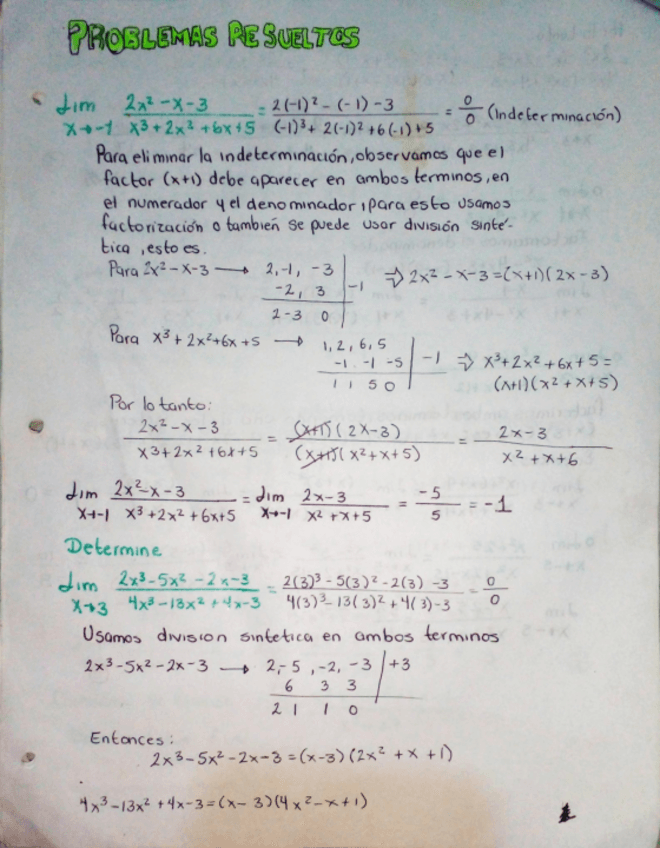 PROBLEMAS RESUELTOS
lim x→-1 (2x² - x - 3)/(x³ + 2x² + 6x + 5) = (2(-1)² - (-1) - 3)/((-1)³ + 2(-1)² + 6(-1) + 5) = 0/0 (Indeterminación)
Para eliminar la indeterminación, observamos que el
factor (x+1) debe aparecer en ambos terminos, en
el numerador y el denominador, para esto usamos
factorización o también se puede usar división sinté-
tica, esto es.
Para 2x² - x - 3 → 2, -1, -3 ⇒ 2x² - x - 3 = (x+1)(2x - 3)
-2, 3 | -1
2 -3 0
Para x³ + 2x² + 6x + 5 → 1, 2, 6, 5
-1 -1 -5 | -1 ⇒ x³ + 2x² + 6x + 5 =
1 1 5 0 (x+1)(x² + x + 5)
Por lo tanto:
(2x² - x - 3)/(x³ + 2x² + 6x + 5) = ((x+1)(2x - 3))/((x+1)(x² + x + 5)) = (2x - 3)/(x² + x + 6)
lim x→-1 (2x² - x - 3)/(x³ + 2x² + 6x + 5) = lim x→-1 (2x - 3)/(x² + x + 5) = -5/5 = -1
Determine
lim x→3 (2x³ - 5x² - 2x - 3)/(4x³ - 13x² + 4x - 3) = (2(3)³ - 5(3)² - 2(3) - 3)/(4(3)³ - 13(3)² + 4(3) - 3) = 0/0
Usamos division sintetica en ambos terminos
2x³ - 5x² - 2x - 3 → 2, -5, -2, -3 | +3
6 3 3
2 1 1 0
Entonces:
2x³ - 5x² - 2x - 3 = (x - 3)(2x² + x + 1)
4x³ - 13x² + 4x - 3 = (x - 3)(4x² - x + 1)